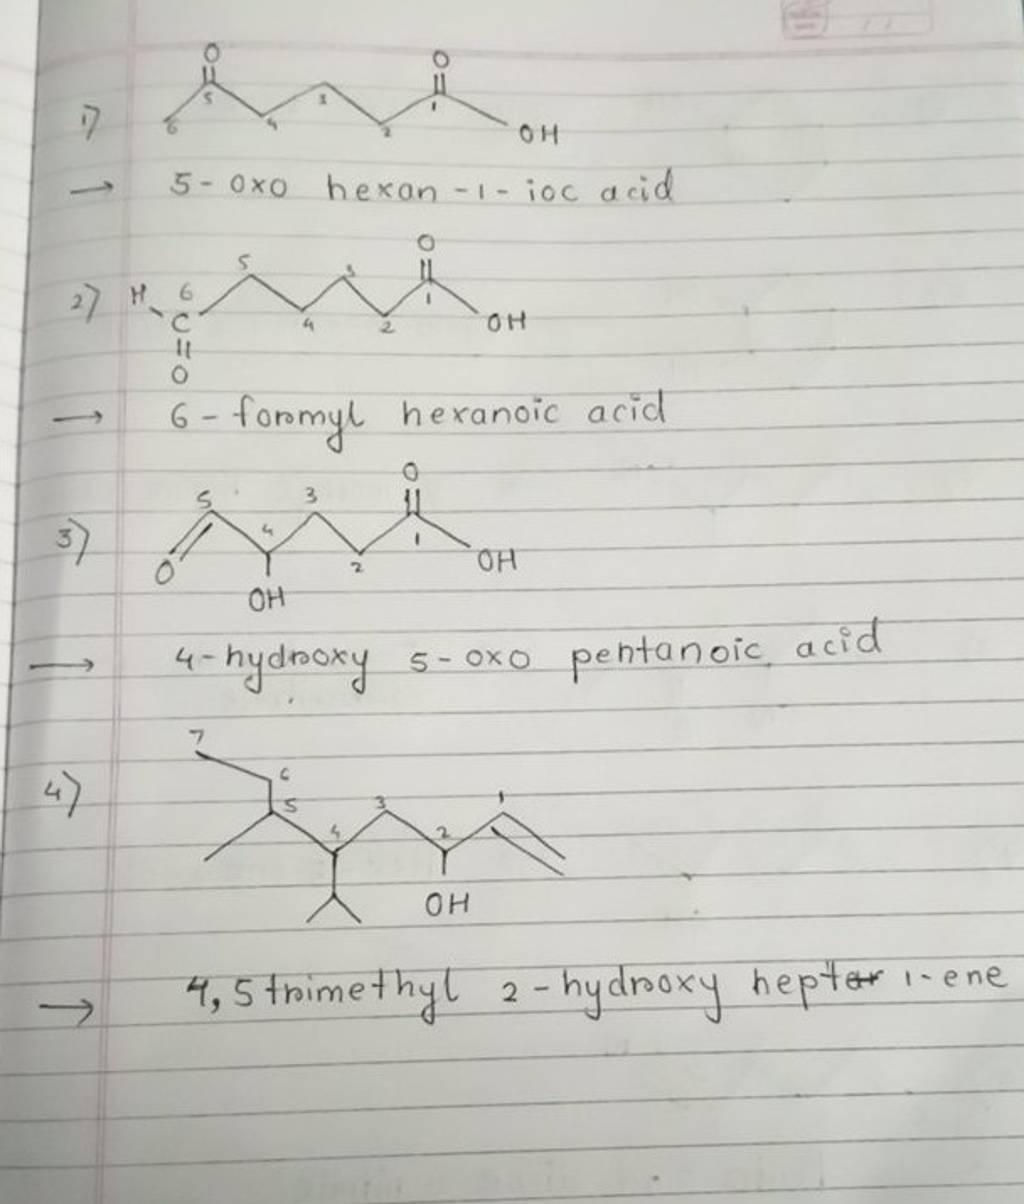 O O
1) 6 5 4 3 2 1 OH
→ 5-oxo hexan-1-ioc acid
O
2) H 6 5 4 3 2 1 OH
C
O
→ 6-formyl hexanoic acid
O
3) 5 4 3 2 1 OH
O OH
→ 4-hydroxy 5-oxo pentanoic acid
7
4) 6 5 4 3 2 1
OH
→ 4,5 trimethyl 2-hydroxy hept 1-ene